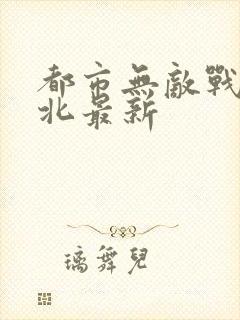 都市無敵戰
北最新
璃舞兒